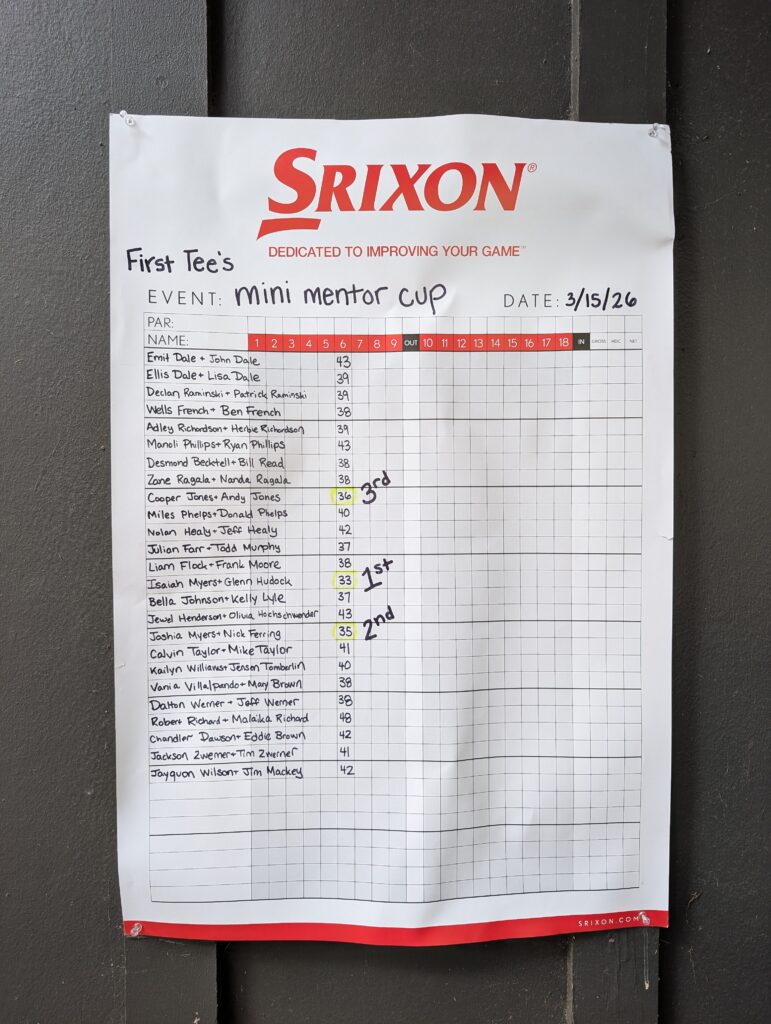 SRIXON®
DEDICATED TO IMPROVING YOUR GAME™
First Tee's
EVENT: mini mentor cup DATE: 3/15/26
PAR:
NAME: 1 2 3 4 5 6 7 8 9 OUT 10 11 12 13 14 15 16 17 18 IN GROSS HDC NET
Emit Dale + John Dale 43
Ellis Dale + Lisa Dale 39
Declan Raminski + Patrick Raminski 39
Wells French + Ben French 38
Adley Richardson + Herbie Richardson 39
Manoli Phillips + Ryan Phillips 43
Desmond Becktell + Bill Read 38
Zane Ragala + Nanda Ragala 38
Cooper Jones + Andy Jones 36 3rd
Miles Phelps + Donald Phelps 40
Nolan Healy + Jeff Healy 42
Julian Farr + Todd Murphy 37
Liam Flock + Frank Moore 38
Isaiah Myers + Glenn Hudock 33 1st
Bella Johnson + Kelly Lyle 37
Jewel Henderson + Olivia Hochschwender 43
Joshia Myers + Nick Ferring 35 2nd
Calvin Taylor + Mike Taylor 41
Kailyn Williams + Jensen Tomberlin 40
Vania Villalpando + Mary Brown 38
Dalton Werner + Jeff Werner 38
Robert Richard + Malaika Richard 48
Chandler Dawson + Eddie Brown 42
Jackson Zwerner + Tim Zwerner 41
Jayquon Wilson + Jim Mackey 42
SRIXON.COM